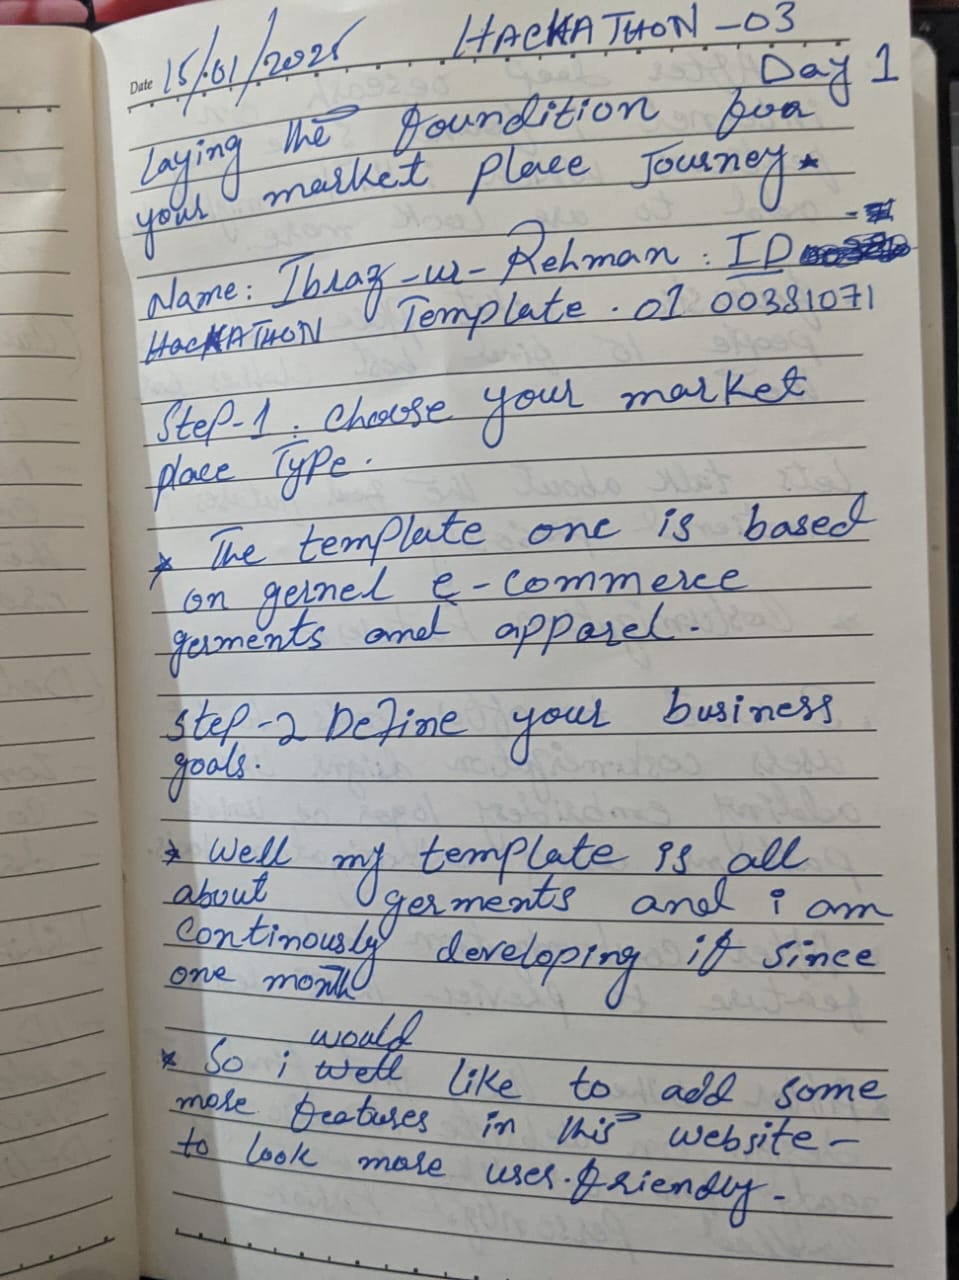 Date 15/01/2025 HACKATHON -03
Day 1
Laying the foundition for
your market place Journey*
Name: Ibraz-ur-Rehman : ID
HACKATHON Template . 01 00381071
Step-1 . Choose your market
place Type.
* The template one is based
on gernel e-commerce
germents and apparel.
Step-2 Define your business
goals.
* Well my template is all
about germents and i am
continously developing it since
one month
would
* So i well like to add some
more features in this website -
to look more user-friendly -